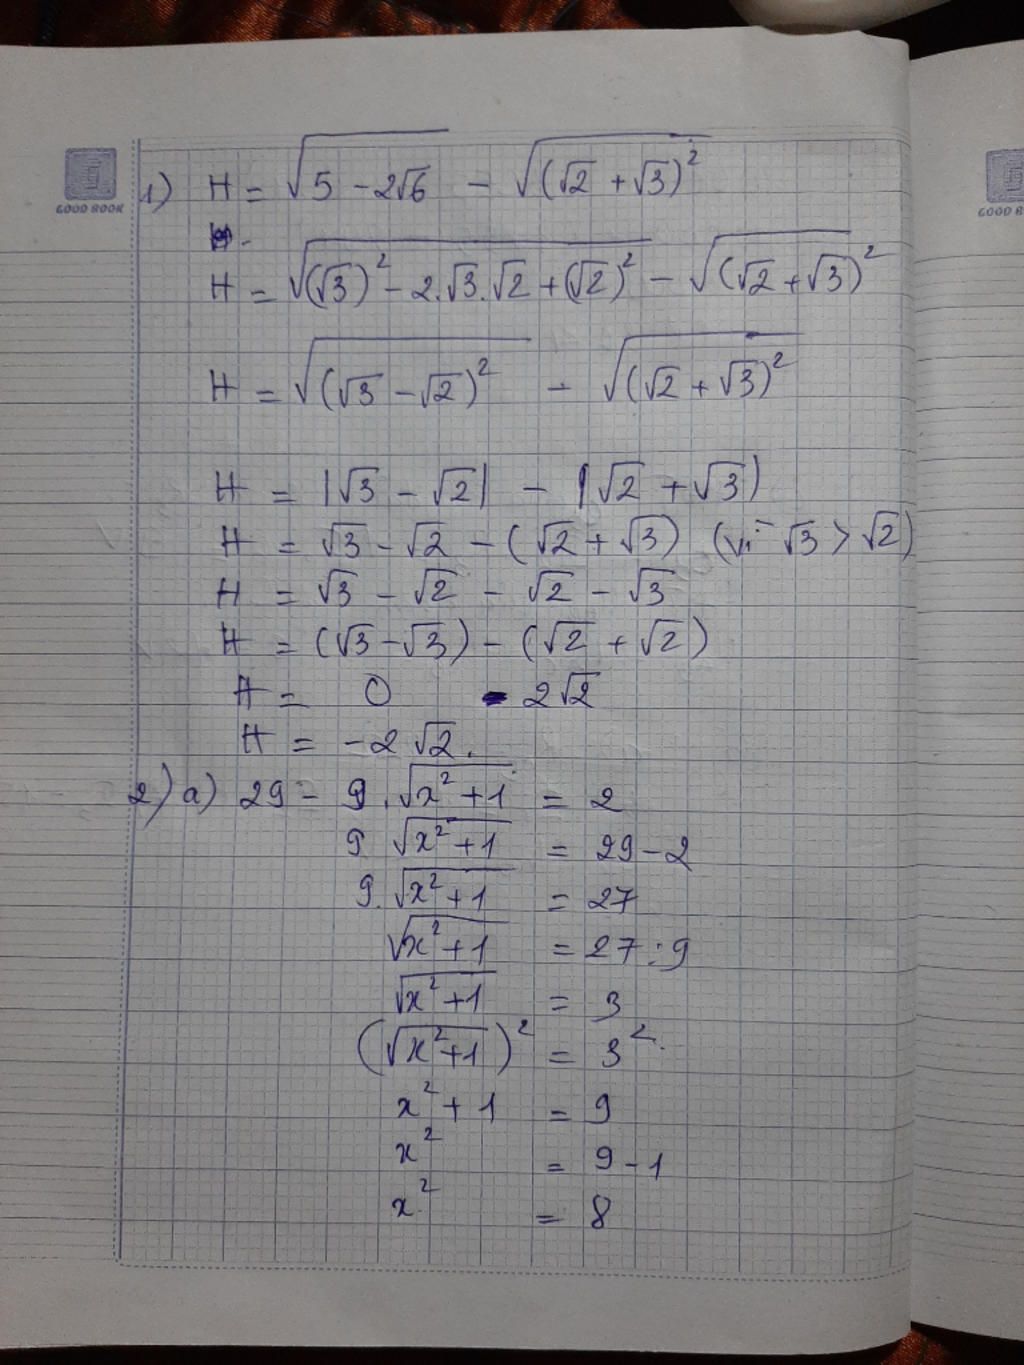 GOOD BOOK
GOOD B
1) H = √(5 - 2√6) - √((√2 + √3)²)
H = √((√3)² - 2.√3.√2 + (√2)²) - √((√2 + √3)²)
H = √((√3 - √2)²) - √((√2 + √3)²)
H = |√3 - √2| - |√2 + √3|
H = √3 - √2 - (√2 + √3) (vì √3 > √2)
H = √3 - √2 - √2 - √3
H = (√3 - √3) - (√2 + √2)
H = 0 - 2√2
H = -2√2.
2) a) 29 - 9.√(x² + 1) = 2
9.√(x² + 1) = 29 - 2
9.√(x² + 1) = 27
√(x² + 1) = 27 : 9
√(x² + 1) = 3
(√(x² + 1))² = 3²
x² + 1 = 9
x² = 9 - 1
x² = 8